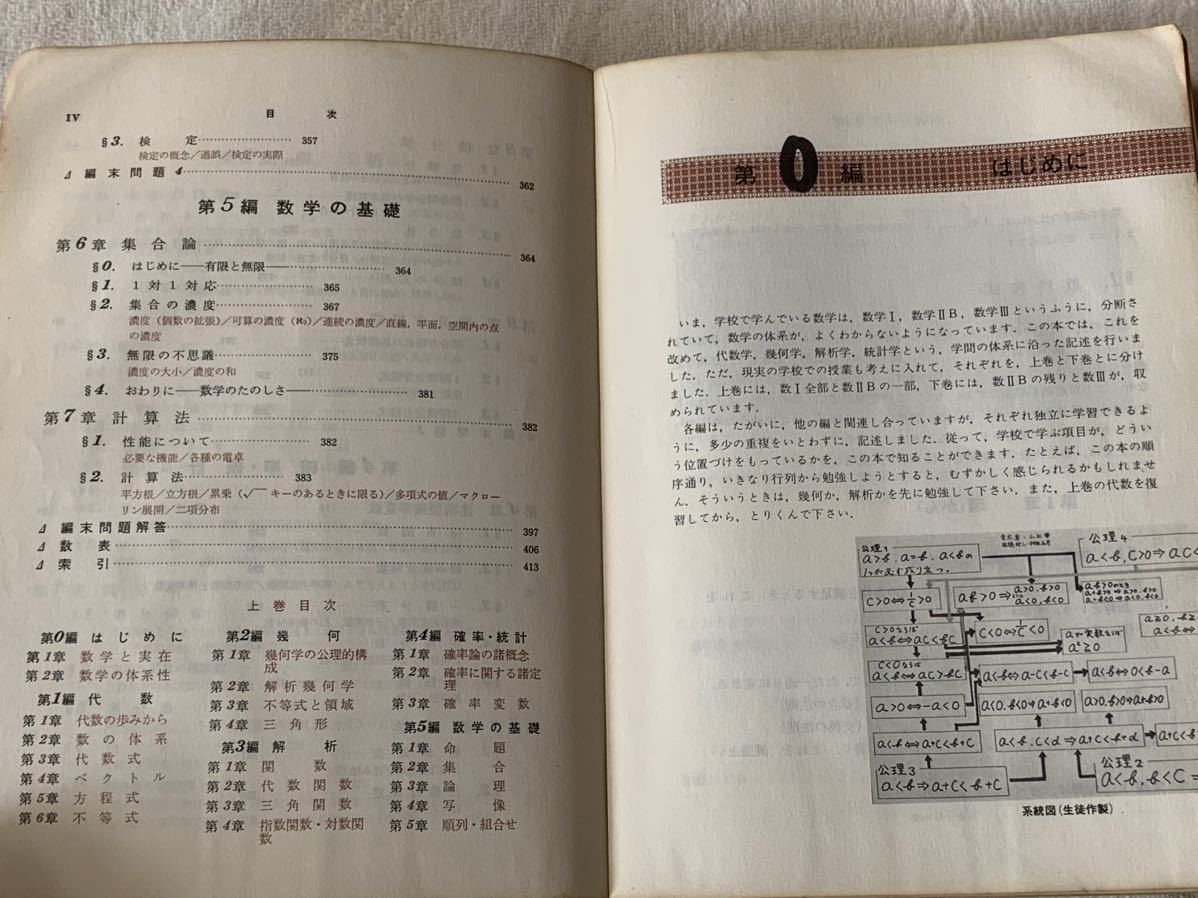 IV 目次
§3. 検定 357
検定の概念／過誤／検定の実際
⊿ 編末問題4 362
第5編 数学の基礎
第6章 集合論 364
§0. はじめに――有限と無限―― 364
§1. 1対1対応 365
§2. 集合の濃度 367
濃度（個数の拡張）／可算の濃度（ℵ₀）／連続の濃度／直線，平面，空間内の点
の濃度
§3. 無限の不思議 375
濃度の大小／濃度の和
§4. おわりに――数学のたのしさ―― 381
第7章 計算法 382
§1. 性能について 382
必要な機能／各種の電卓
§2. 計算法 383
平方根／立方根／累乗（√ キーのあるときに限る）／多項式の値／マクロー
リン展開／二項分布
⊿ 編末問題解答 397
⊿ 数表 406
⊿ 索引 413
上巻目次
第0編 はじめに
第1章 数学と実在
第2章 数学の体系性
第1編 代数
第1章 代数の歩みから
第2章 数の体系
第3章 代数式
第4章 ベクトル
第5章 方程式
第6章 不等式
第2編 幾何
第1章 幾何学の公理的構
成
第2章 解析幾何学
第3章 不等式と領域
第4章 三角形
第3編 解析
第1章 関数
第2章 代数関数
第3章 三角関数
第4章 指数関数・対数関
数
第4編 確率・統計
第1章 確率論の諸概念
第2章 確率に関する諸定
理
第3章 確率変数
第5編 数学の基礎
第1章 命題
第2章 集合
第3章 論理
第4章 写像
第5章 順列・組合せ
第0編 はじめに
いま，学校で学んでいる数学は，数学Ⅰ，数学ⅡB，数学Ⅲというふうに，分断さ
れていて，数学の体系が，よくわからないようになっています．この本では，これを
改めて，代数学，幾何学，解析学，統計学という，学問の体系に沿った記述を行いま
した．ただ，現実の学校での授業も考えに入れて，それぞれを，上巻と下巻とに分け
ました．上巻には，数Ⅰ全部と数ⅡBの一部，下巻には，数ⅡBの残りと数Ⅲが，収
められています．
各編は，たがいに，他の編と関連し合っていますが，それぞれ独立に学習できるよ
うに，多少の重複をいとわずに，記述しました．従って，学校で学ぶ項目が，どうい
う位置づけをもっているかを，この本で知ることができます．たとえば，この本の順
序通り，いきなり行列から勉強しようとすると，むずかしく感じられるかもしれませ
ん．そういうときは，幾何か，解析かを先に勉強して下さい．また，上巻の代数を復
習してから，とりくんで下さい．
公理1
a>b，a=b，a<bの
1つが必ず成り立つ．
公理4
a<b，C>0⇒aC
C>0⇔1/C>0
ab>0⇒
a>0，b>0
a<0，b<0
C<0⇔1/C<0
C>0ならば
a<b⇔aC<bC
aが実数ならば
a²≥0
C<0ならば
a<b⇔aC>bC
a<b⇔a-C<b-C
a<b⇔0<b-a
a>0⇔-a<0
a<0，b<0⇒a+b<0
a>0，b>0⇒a+b>0
a<b⇔a+C<b+C
a<b，C<d⇒a+C<b+d
公理3
a<b⇒a+C<b+C
公理2
a<b，b<C⇒
系統図（生徒作製）